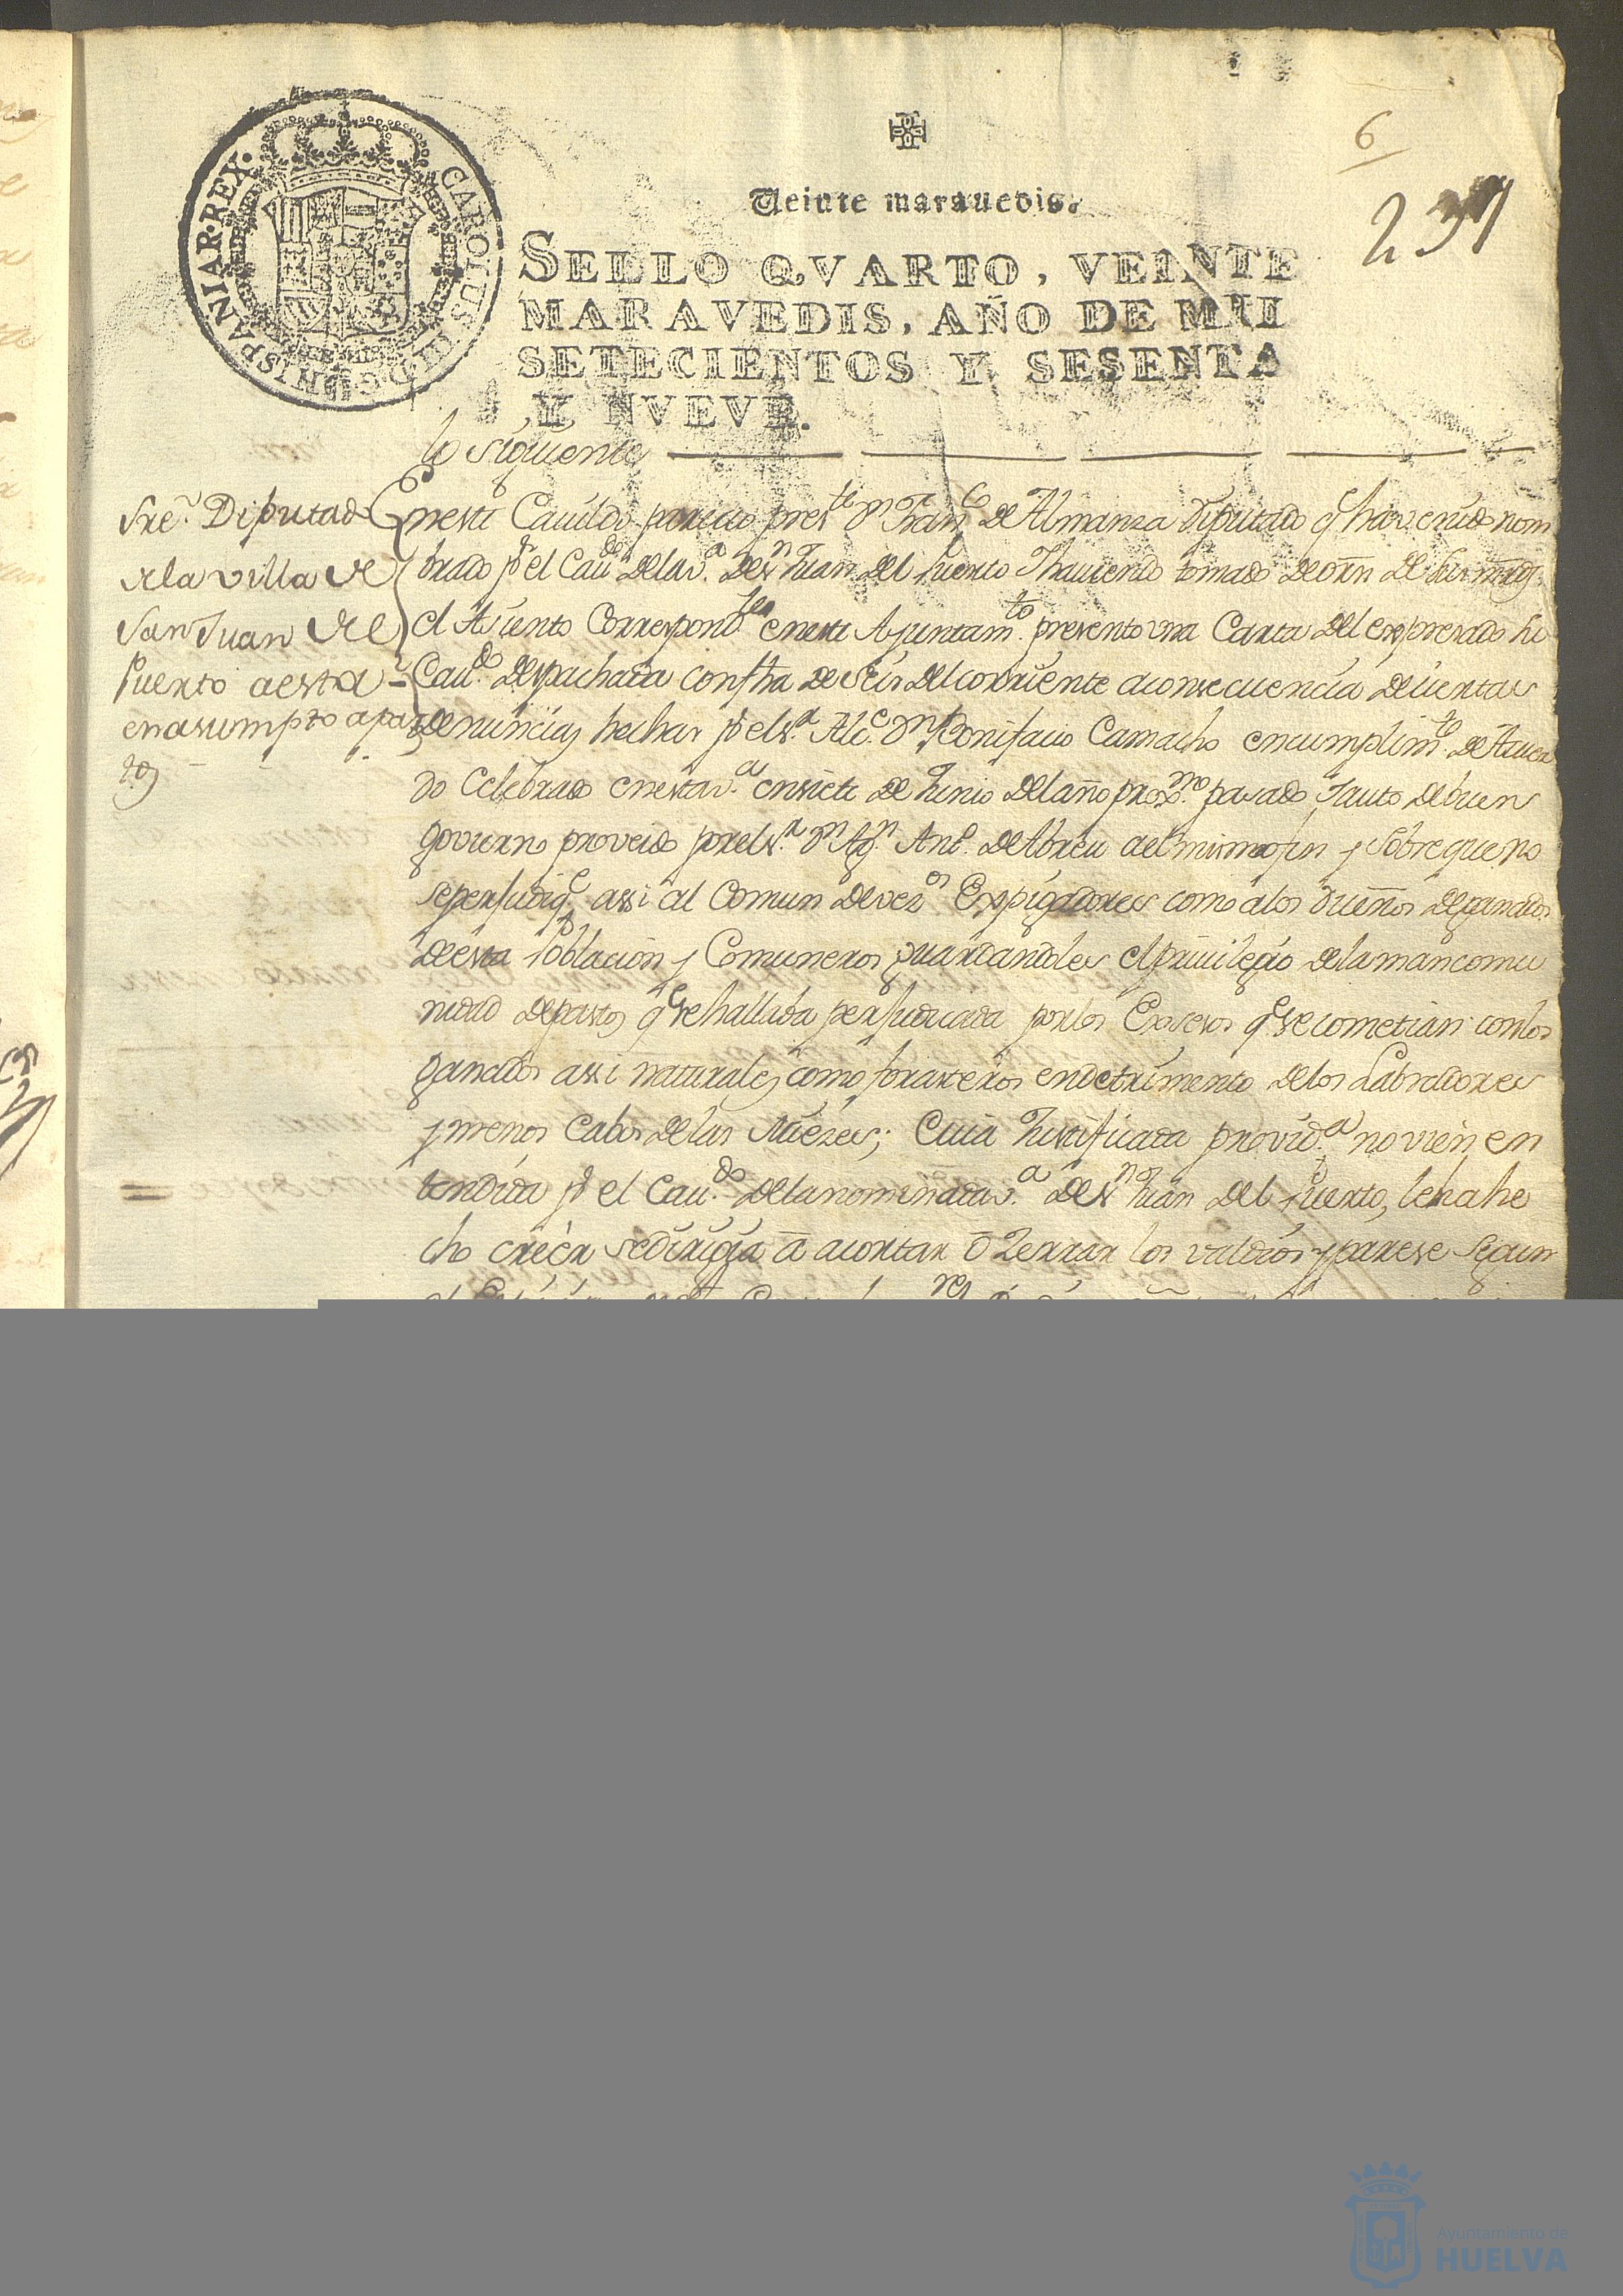 6
237
Veinte marauedis.
SELLO QVARTO, VEINTE
MARAVEDIS, AÑO DE MIL
SETECIENTOS Y SESENTA
Y NVEVE.
CAROLUS III D.G. HISPANIAR. REX.
lo siguiente
Sre. Diputado
de la villa de
San Juan del
Puerto a esta
en asumpto a pas
tos
En este Cauildo parecio preste. Dn. Fran.co de Almanza Diputado q. ha venido nom
brado pr. el Cau.do de la v.a de Sn. Juan del Puerto I haviendo tomado de orn. de sus mrds.
el Asiento Correspond.te en este Ayuntam.to presento una Carta del expresado su
Cau.do despachada con fha de seis del corriente a consecuencia de ciertas
denuncias hechas pr. el Sr. Alc.e Dn. Bonifacio Camacho en cumplim.to de Acuer
do Celebrado en esta v.a en siete de Junio del año prox.mo pasado I auto de buen
govierno proveido por el Sr. Dn. Ag.n Ant.o de Abreu a el mismo fin y sobre que no
se perjudiq.e assi al Comun de vez.os Expigadores como a los Dueños de ganados
de esta Poblacion y Comuneros guardandoles el privilegio de la mancomu
nidad de pastos q.e se hallaba perjudicada por los Exsesos q.e se cometian con los
ganados assi naturales como forasteros en detrimento de los Labradores
y menos Cabos de las Miezes; Cuia Justificada provid.a no vien en
tendida pr. el Cau.do de la nominada v.a de Sn. Juan del Puerto, le ha he
cho creer se dirigia a acortar o Zerrar los valdios y parese segun
Ayuntamiento de
HUELVA